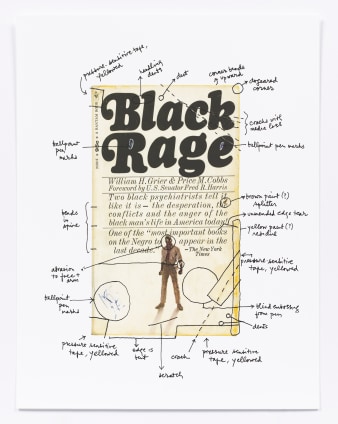 pressure sensitive tape,
yellowed
handling
dents
dent
corner bends
upward
dogeared
corner
Black
Rage
cracks with
media loss
ballpoint
pen
marks
ballpoint pen marks
William H. Grier & Price M. Cobbs
Foreword by U.S. Senator Fred R. Harris
Two black psychiatrists tell it
like it is — the desperation, the
conflicts and the anger of the
black man's life in America today!
One of the "most important books
on the Negro to appear in the
last decade."
—The New York
Times
brown paint (?)
splatter
unmended edge tears
yellow paint (?)
residue
bends
in
spine
pressure sensitive
tape, yellowed
abrasion
to face +
arm
ballpoint
pen
marks
blind embossing
from pen
dents
pressure sensitive
tape, yellowed
edge is
bent
crack
pressure sensitive
tape, yellowed
scratch